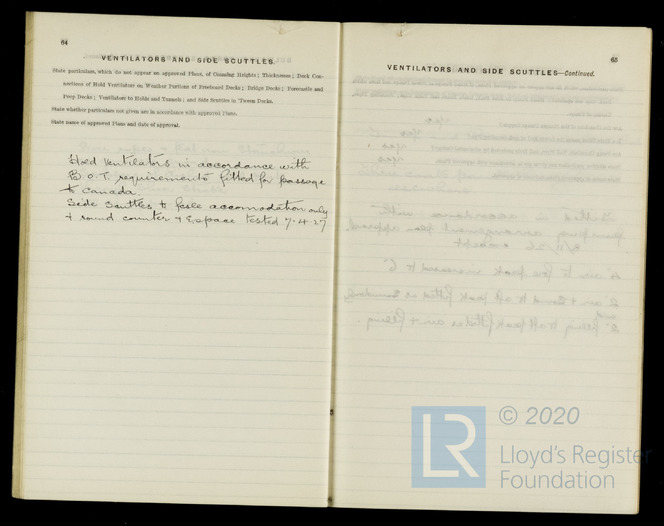 64
VENTILATORS AND SIDE SCUTTLES.
State particulars, which do not appear on approved Plans, of Coaming Heights; Thicknesses; Deck Con-
nections of Hold Ventilators on Weather Portions of Freeboard Decks; Bridge Decks; Forecastle and
Poop Decks; Ventilators to Holds and Tunnels; and Side Scuttles in 'Tween Decks.
State whether particulars not given are in accordance with approved Plans.
State name of approved Plans and date of approval.
Hxed Ventilators in accordance with
B.O.T. requirements fitted for passage
to Canada.
Side Scuttles to focle accomodation only
+ round counter + E space tested 7.4.27
65
VENTILATORS AND SIDE SCUTTLES—Continued.
LR
© 2020
Lloyd's Register
Foundation